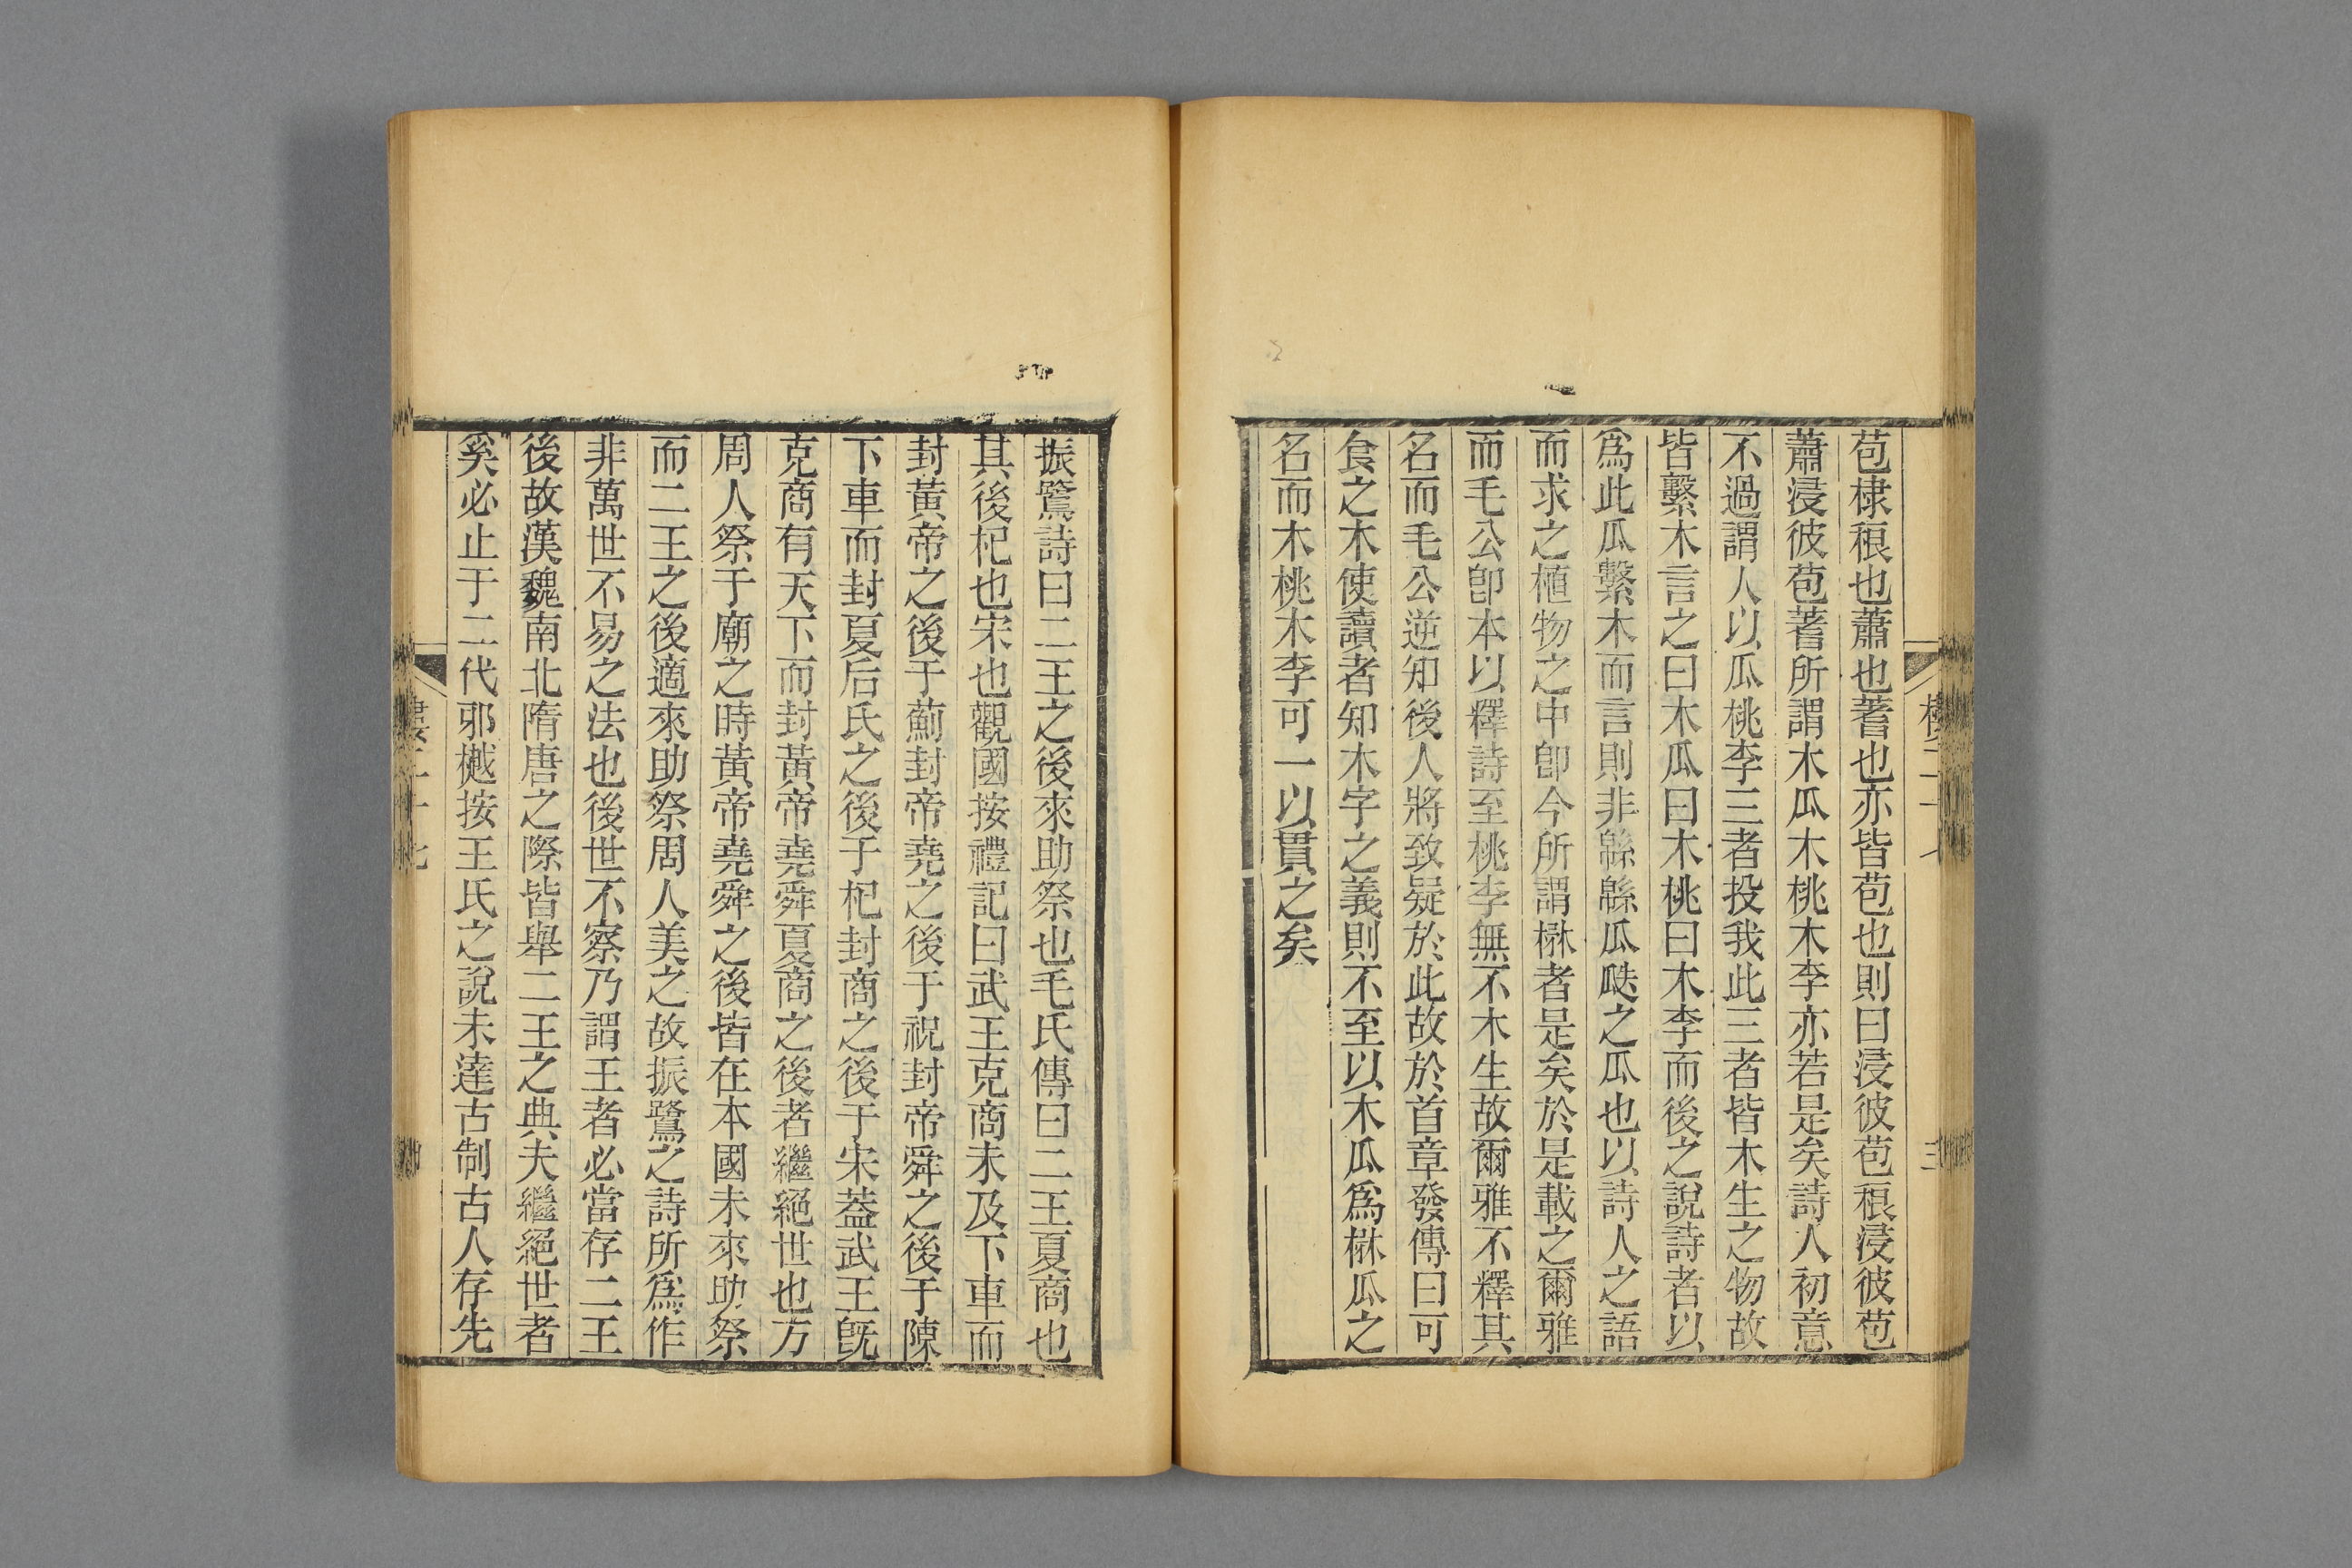 苞棣稂也蕭也蓍也亦皆苞也則曰浸彼苞稂浸彼苞
蕭浸彼苞蓍所謂木瓜木桃木李亦若是矣詩人初意
不過謂人以瓜桃李三者投我此三者皆木生之物故
皆繫木言之曰木瓜曰木桃曰木李而後之說詩者以
爲此瓜繫木而言則非緜緜瓜瓞之瓜也以詩人之語
而求之植物之中卽今所謂楙者是矣於是載之爾雅
而毛公卽本以釋詩至桃李無不木生故爾雅不釋其
名而毛公逆知後人將致疑於此故於首章發傳曰可
食之木使讀者知木字之義則不至以木瓜爲楙瓜之
名而木桃木李可一以貫之矣
振鷺詩曰二王之後來助祭也毛氏傳曰二王夏商也
其後杞也宋也觀國按禮記曰武王克商未及下車而
封黃帝之後于薊封帝堯之後于祝封帝舜之後于陳
下車而封夏后氏之後于杞封商之後于宋葢武王旣
克商有天下而封黃帝堯舜夏商之後者繼絕世也方
周人祭于廟之時黃帝堯舜之後皆在本國未來助祭
而二王之後適來助祭周人美之故振鷺之詩所爲作
非萬世不易之法也後世不察乃謂王者必當存二王
後故漢魏南北隋唐之際皆舉二王之典夫繼絕世者
奚必止于二代邪樾按王氏之說未達古制古人存先